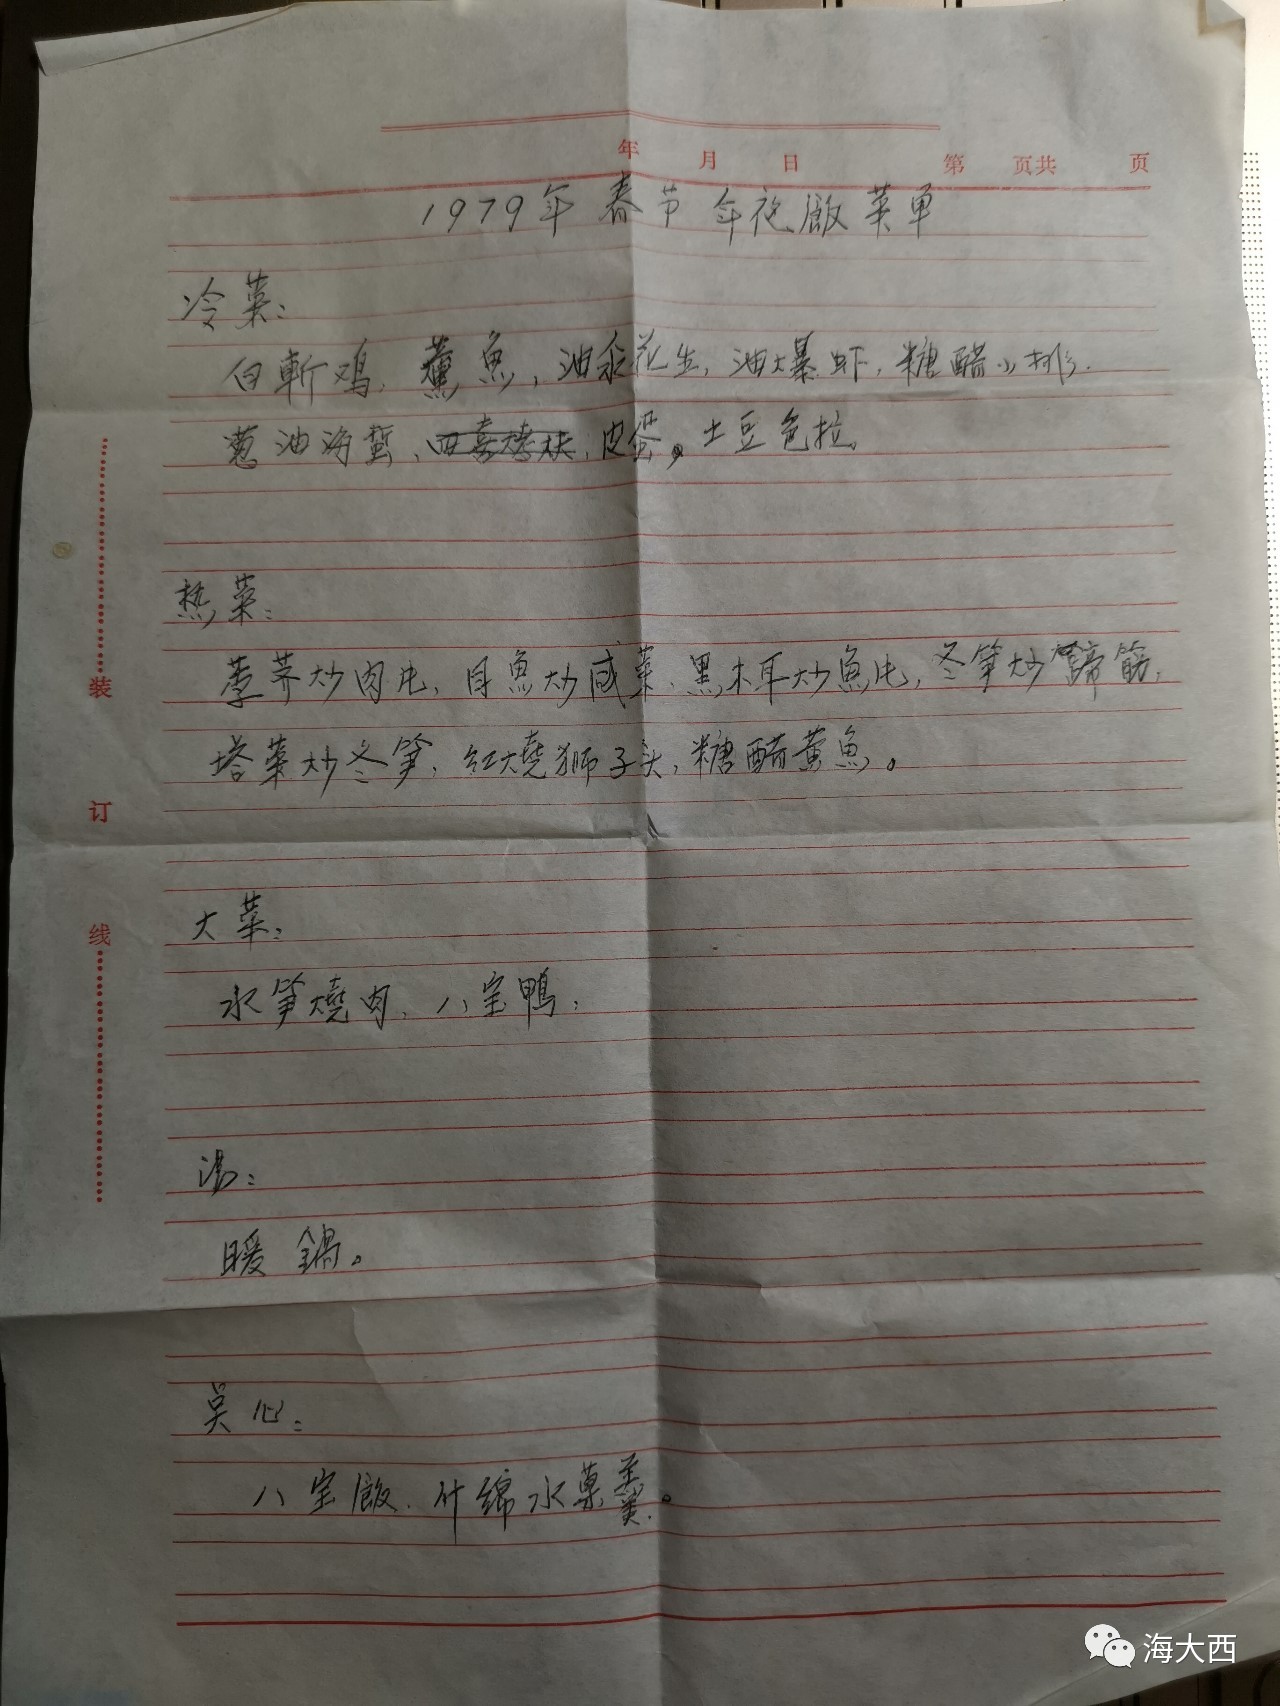 年 月 日 第 页共 页
1979年春节年夜飯菜单
冷菜：
白斬鸡、薰魚，油汆花生，油爆虾，糖醋小排、
葱油海蜇、四喜烤夫，皮蛋。土豆色拉。
热菜：
荸荠炒肉片，目魚炒咸菜、黑木耳炒魚片，冬笋炒蹄筋，
塔菜炒冬笋，红燒狮子头，糖醋黄魚。
装
订
大菜：
线
水笋燒肉、八宝鴨；
汤：
暖鍋。
点心：
八宝飯、什綿水菓羹。
海大西